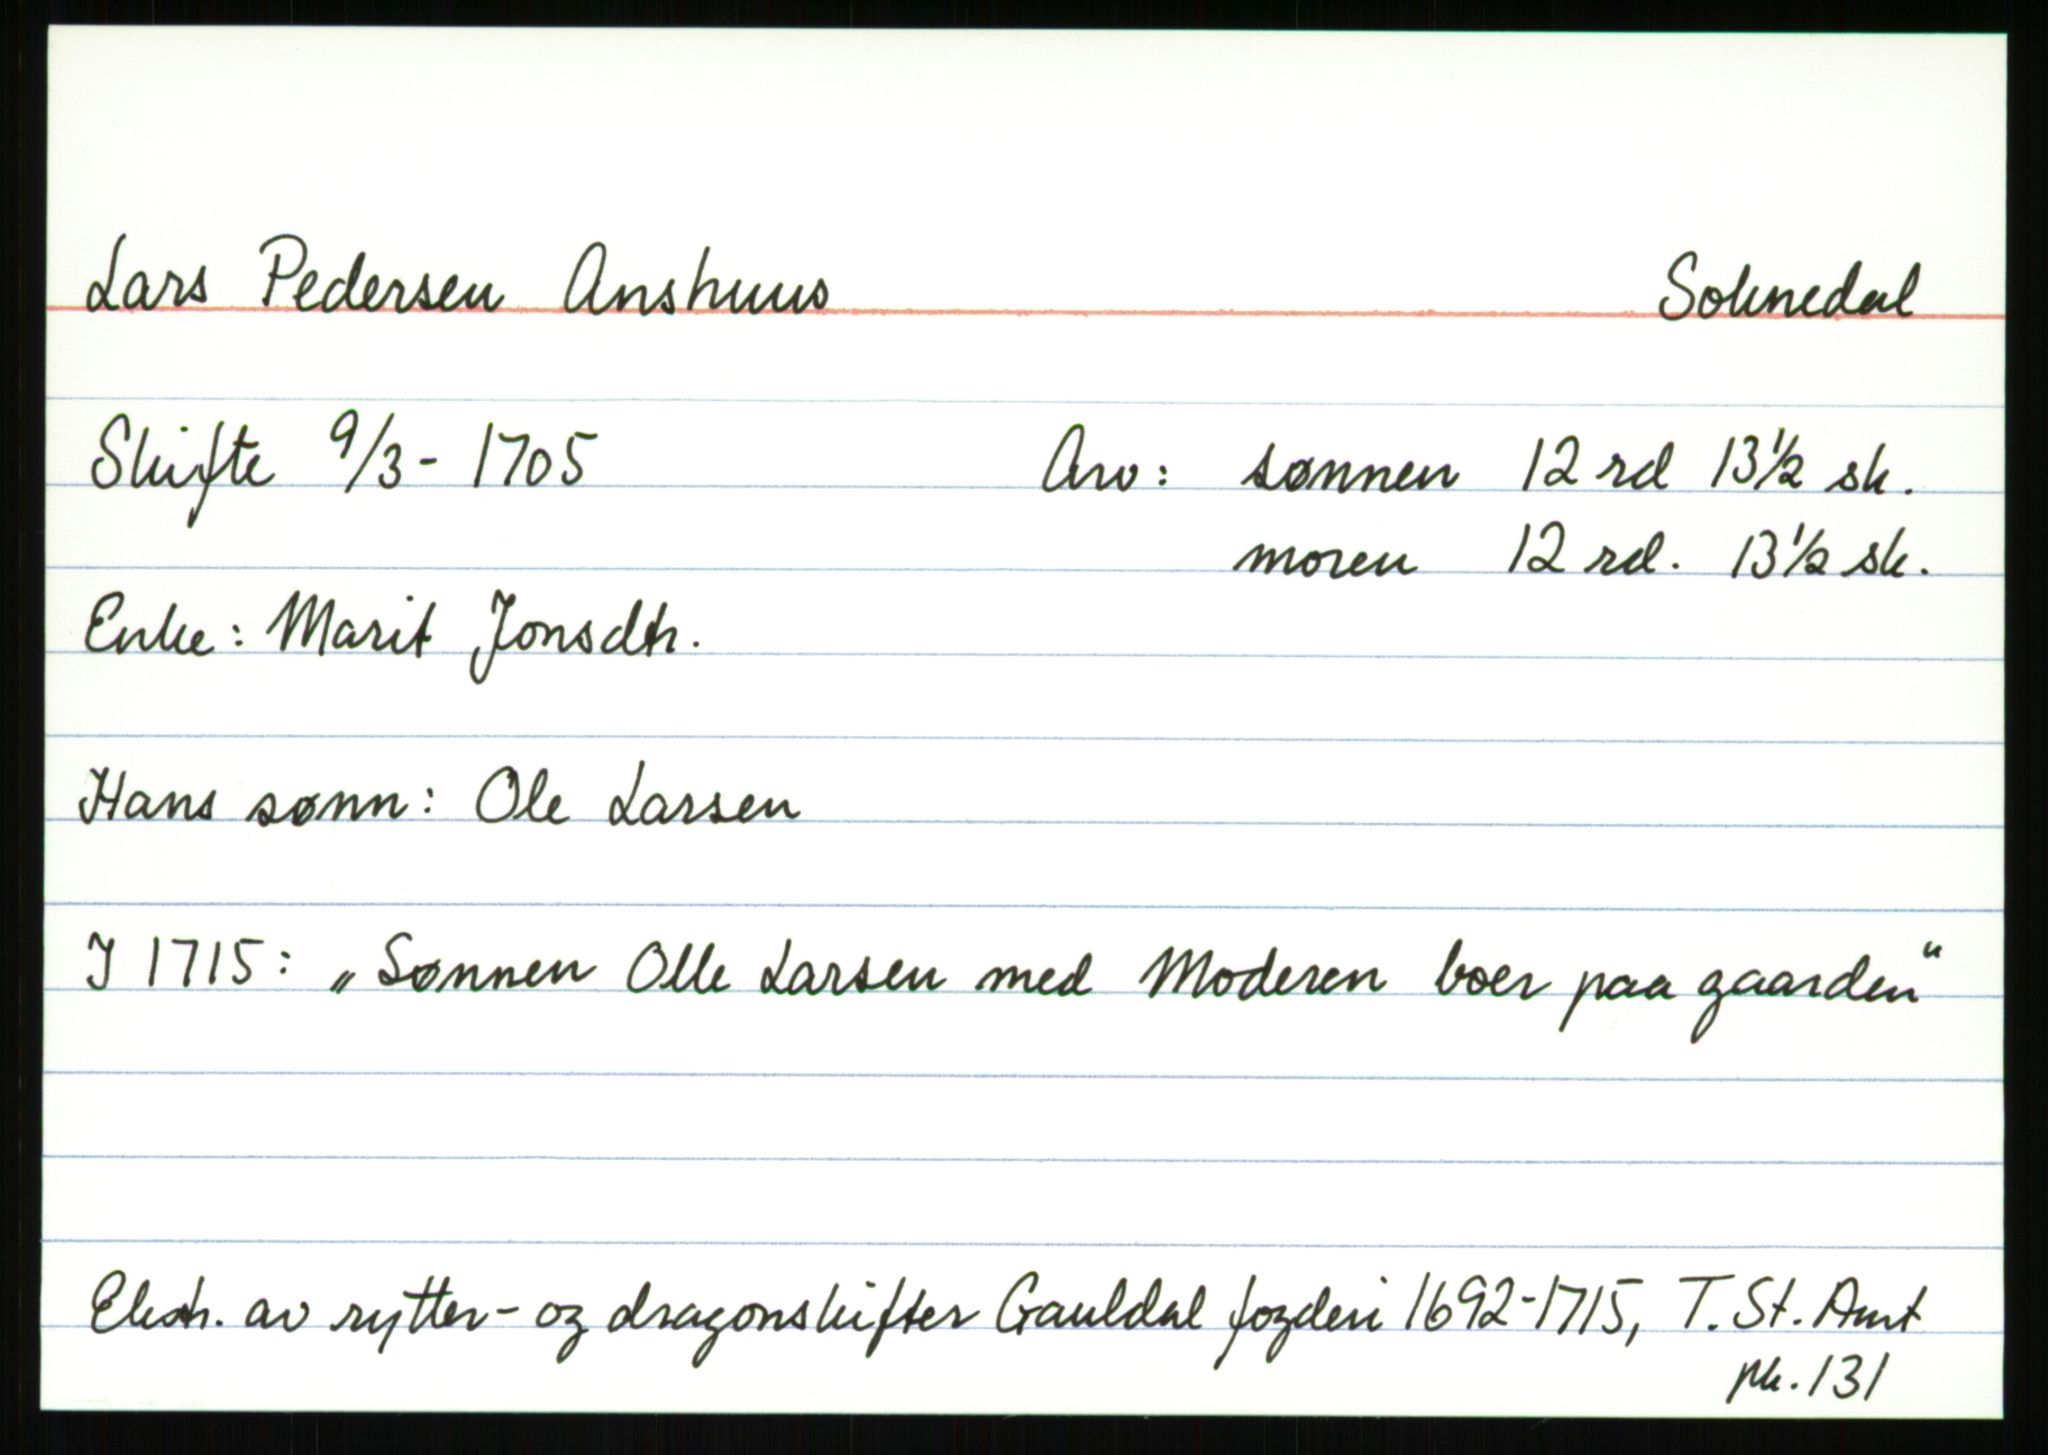 Lars Pedersen Anshuus Soknedal
Skifte 9/3 - 1705 Arv: sønnen 12 rd 13 1/2 sk.
moren 12 rd. 13 1/2 sk.
Enke: Marit Jonsdtr.
Hans sønn: Ole Larsen
I 1715: „Sønnen Olle Larsen med Moderen boer paa gaarden“
Ekstr. av rytter- og dragonskifter Gauldal fogderi 1692-1715, T. St. Amt
pk. 131